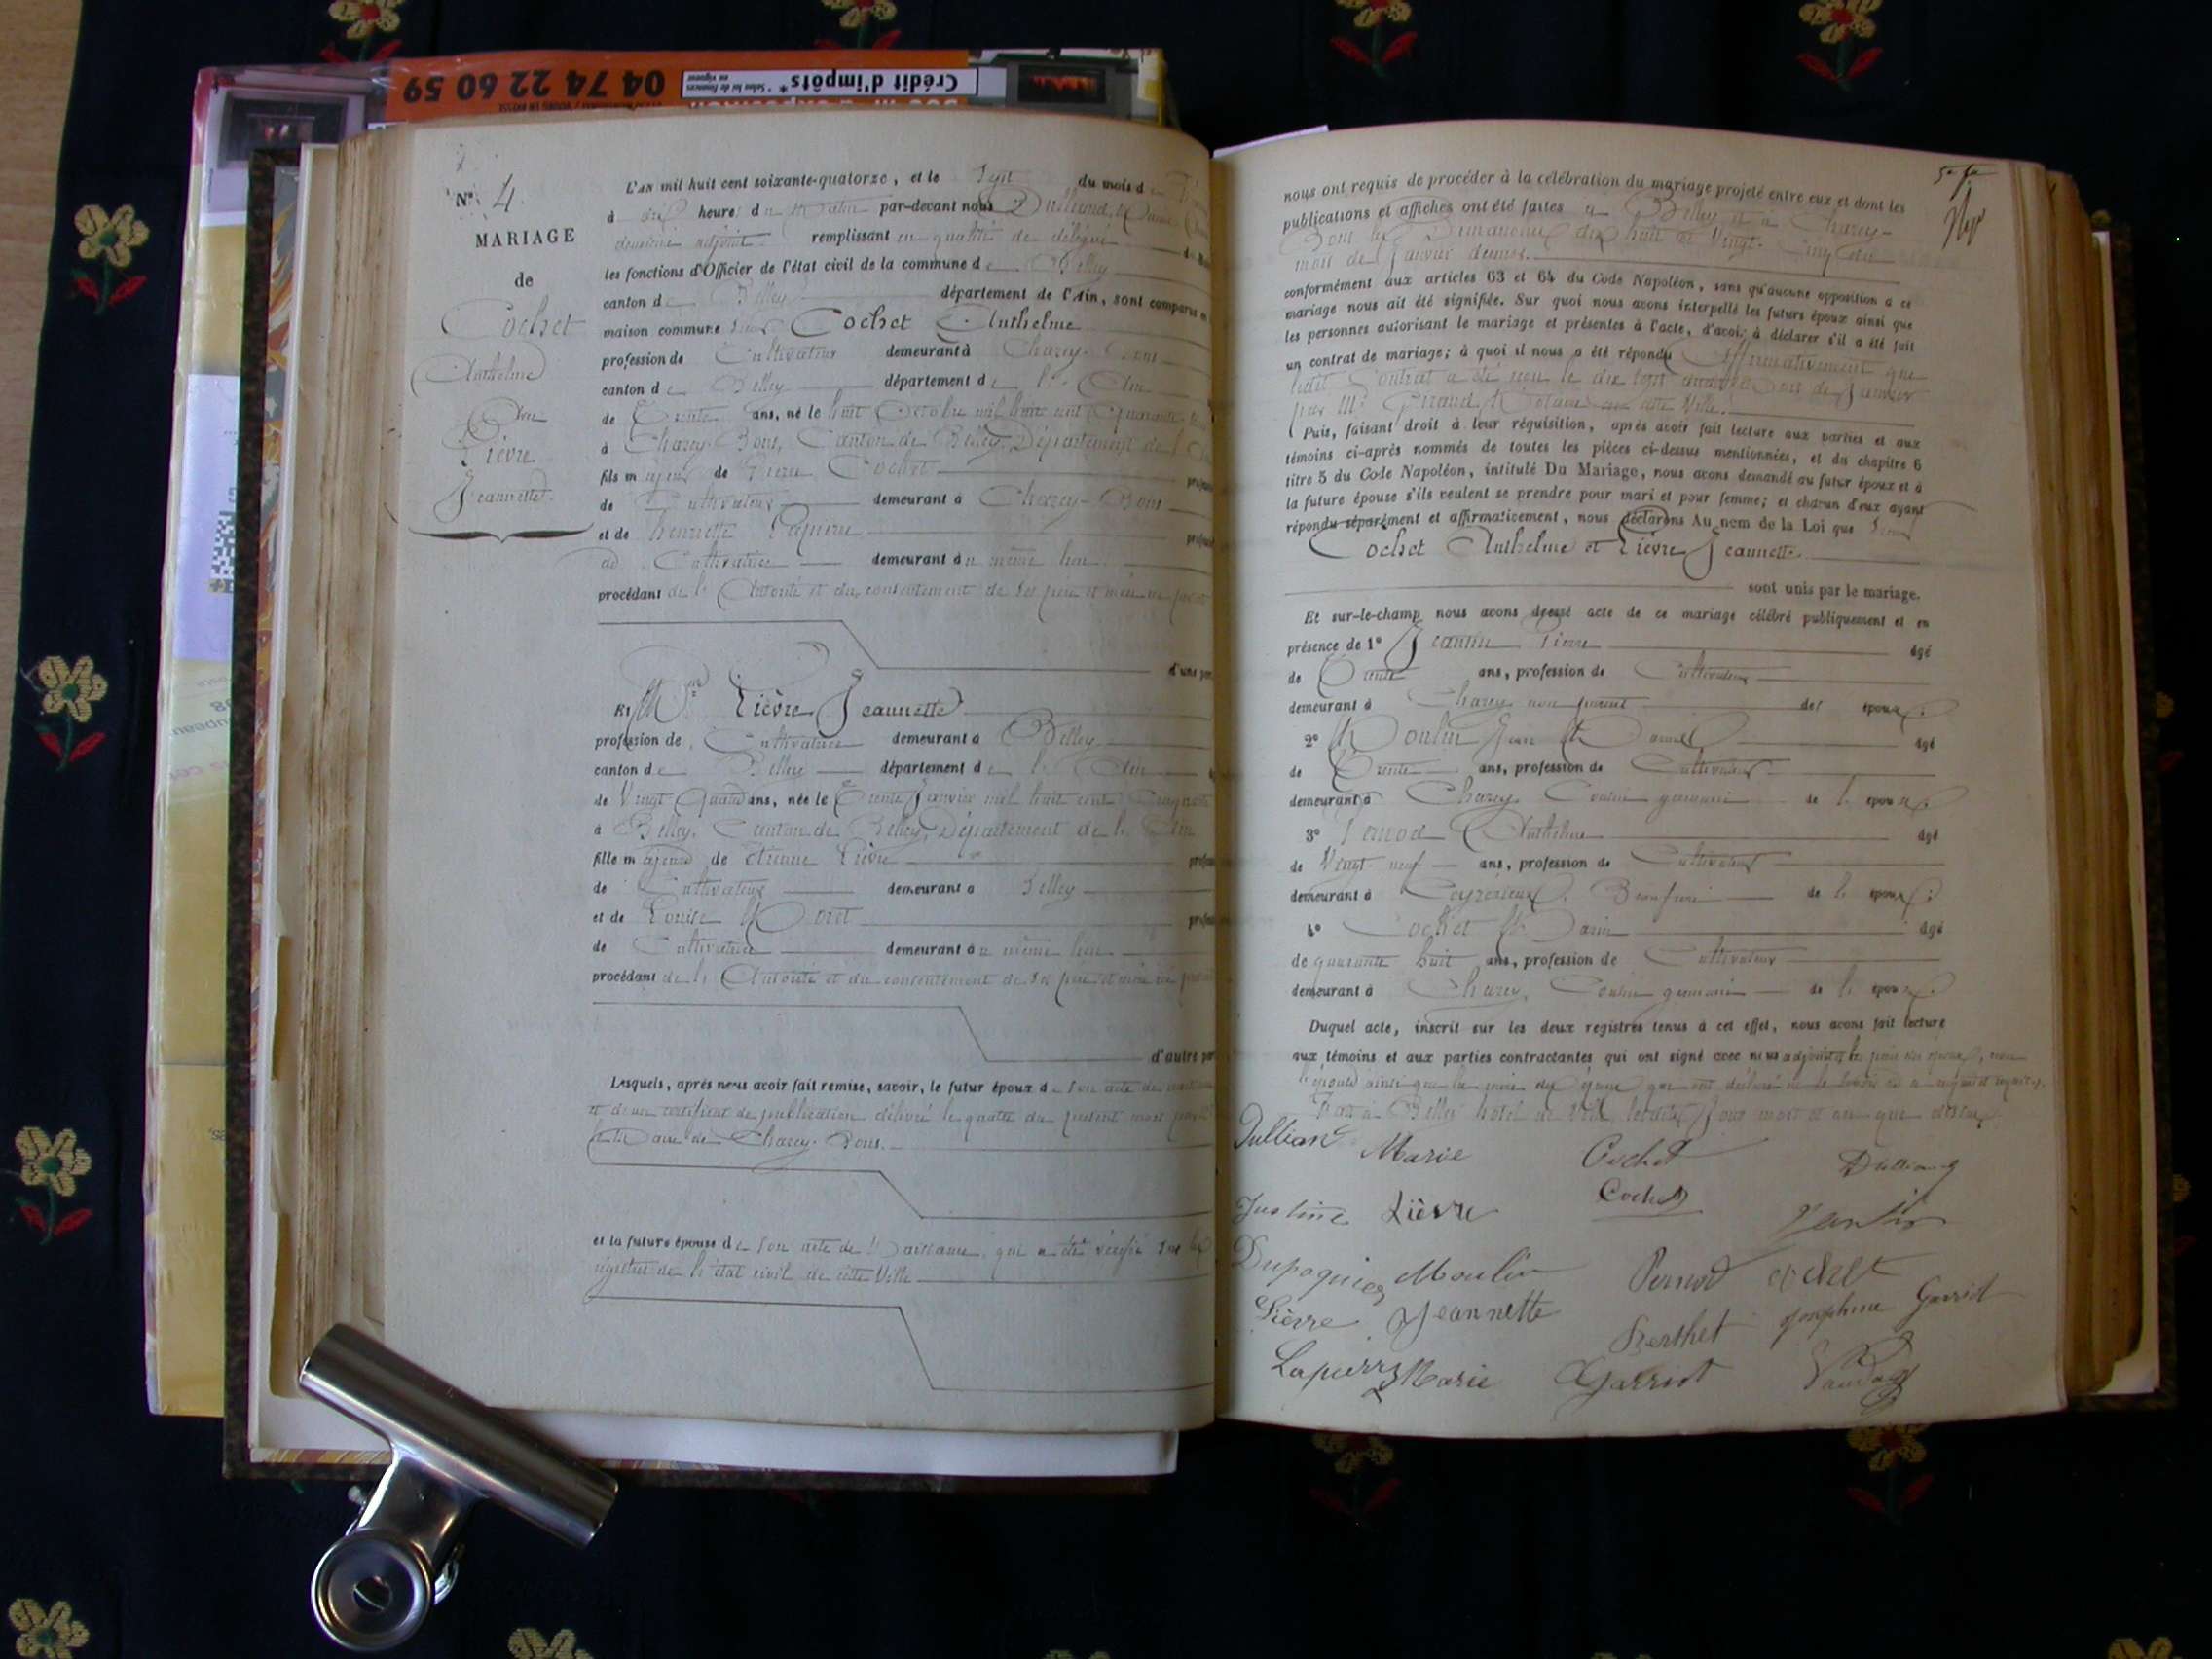 04 74 22 60 59
Crédit d'impôts*
N° 4
MARIAGE
de
Cochet
Anthelme
Lièvre
Jeannette
L'AN mil huit cent soixante-quatorze, et le Sept du mois d
à dix heures du Matin par-devant nous
deuxième adjoint remplissant en qualité de délégué
les fonctions d'Officier de l'état civil de la commune de Belley
canton de Belley département de l'Ain, sont comparus
maison commune Cochet Anthelme
profession de Cultivateur demeurant à Charey-Bons
canton de Belley département de l'Ain
de Trente ans, né le huit Octobre mil huit cent Quarante
à Charey-Bons, Canton de Belley, Département de l'
fils majeur de Pierre Cochet
de Cultivateur demeurant à Charey-Bons
et de henriette
de Cultivatrice demeurant au même lieu
procédant de l'Autorité et du consentement de ses père et mère
d'une par
Et Lièvre Jeannette
profession de Cultivatrice demeurant à Belley
canton de Belley département de l'Ain
de Vingt Quatre ans, née le Trente Janvier mil huit cent Cinquante
à Belley, Canton de Belley, Département de l'Ain
fille majeure de Etienne Lièvre
de Cultivateur demeurant à Belley
et de Louise Moret
de Cultivatrice demeurant au même lieu
procédant de l'Autorité et du consentement de ses père et mère
d'autre par
Lesquels, après nous avoir fait remise, savoir, le futur époux de son acte de
et d'un certificat de publication délivré le quatre du présent mois par
Maire de Charey-Bons.
et la future épouse de son acte de Naissance, qui a été vérifié sur les
registres de l'état civil de cette Ville
nous ont requis de procéder à la célébration du mariage projeté entre eux et dont les
publications et affiches ont été faites à Belley et à Charey-
Bons les Dimanches dix huit et Vingt-Cinq du
mois de Janvier dernier.
conformément aux articles 63 et 64 du Code Napoléon, sans qu'aucune opposition à ce
mariage nous ait été signifiée. Sur quoi nous avons interpellé les futurs époux ainsi que
les personnes autorisant le mariage et présentes à l'acte, d'avoir à déclarer s'il a été fait
un contrat de mariage; à quoi il nous a été répondu Affirmativement que
ledit Contrat a été reçu le dix sept du mois de Janvier
par Me Giraud, Notaire en cette Ville.
Puis, faisant droit à leur réquisition, après avoir fait lecture aux parties et aux
témoins ci-après nommés de toutes les pièces ci-dessus mentionnées, et du chapitre 6
titre 5 du Code Napoléon, intitulé Du Mariage, nous avons demandé au futur époux et à
la future épouse s'ils veulent se prendre pour mari et pour femme; et chacun d'eux ayant
répondu séparément et affirmativement, nous déclarons Au nom de la Loi que
Cochet Anthelme et Lièvre Jeannette
sont unis par le mariage.
Et sur-le-champ nous avons dressé acte de ce mariage célébré publiquement et en
présence de 1° Jeantin Pierre âgé
de Trente ans, profession de Cultivateur
demeurant à Charey non parent des époux;
2° Moulin Jean Marie âgé
de Trente ans, profession de Cultivateur
demeurant à Charey Cousin germain de l'époux;
3° Pernod Anthelme âgé
de Vingt neuf ans, profession de Cultivateur
demeurant à Ceyzérieux, Beau frère de l'époux;
4° Cochet Marin âgé
de quarante huit ans, profession de Cultivateur
demeurant à Charey, Cousin germain de l'époux.
Duquel acte, inscrit sur les deux registres tenus à cet effet, nous avons fait lecture
aux témoins et aux parties contractantes qui ont signé avec nous
Fait à Belley hôtel de Ville, lesdits jour mois et an que dessus
Marie Cochet
Cochet
Justine Lièvre
Dupoquier Moulin Pernod cochet
Lièvre Jeannette Berthet Josephine
Marie